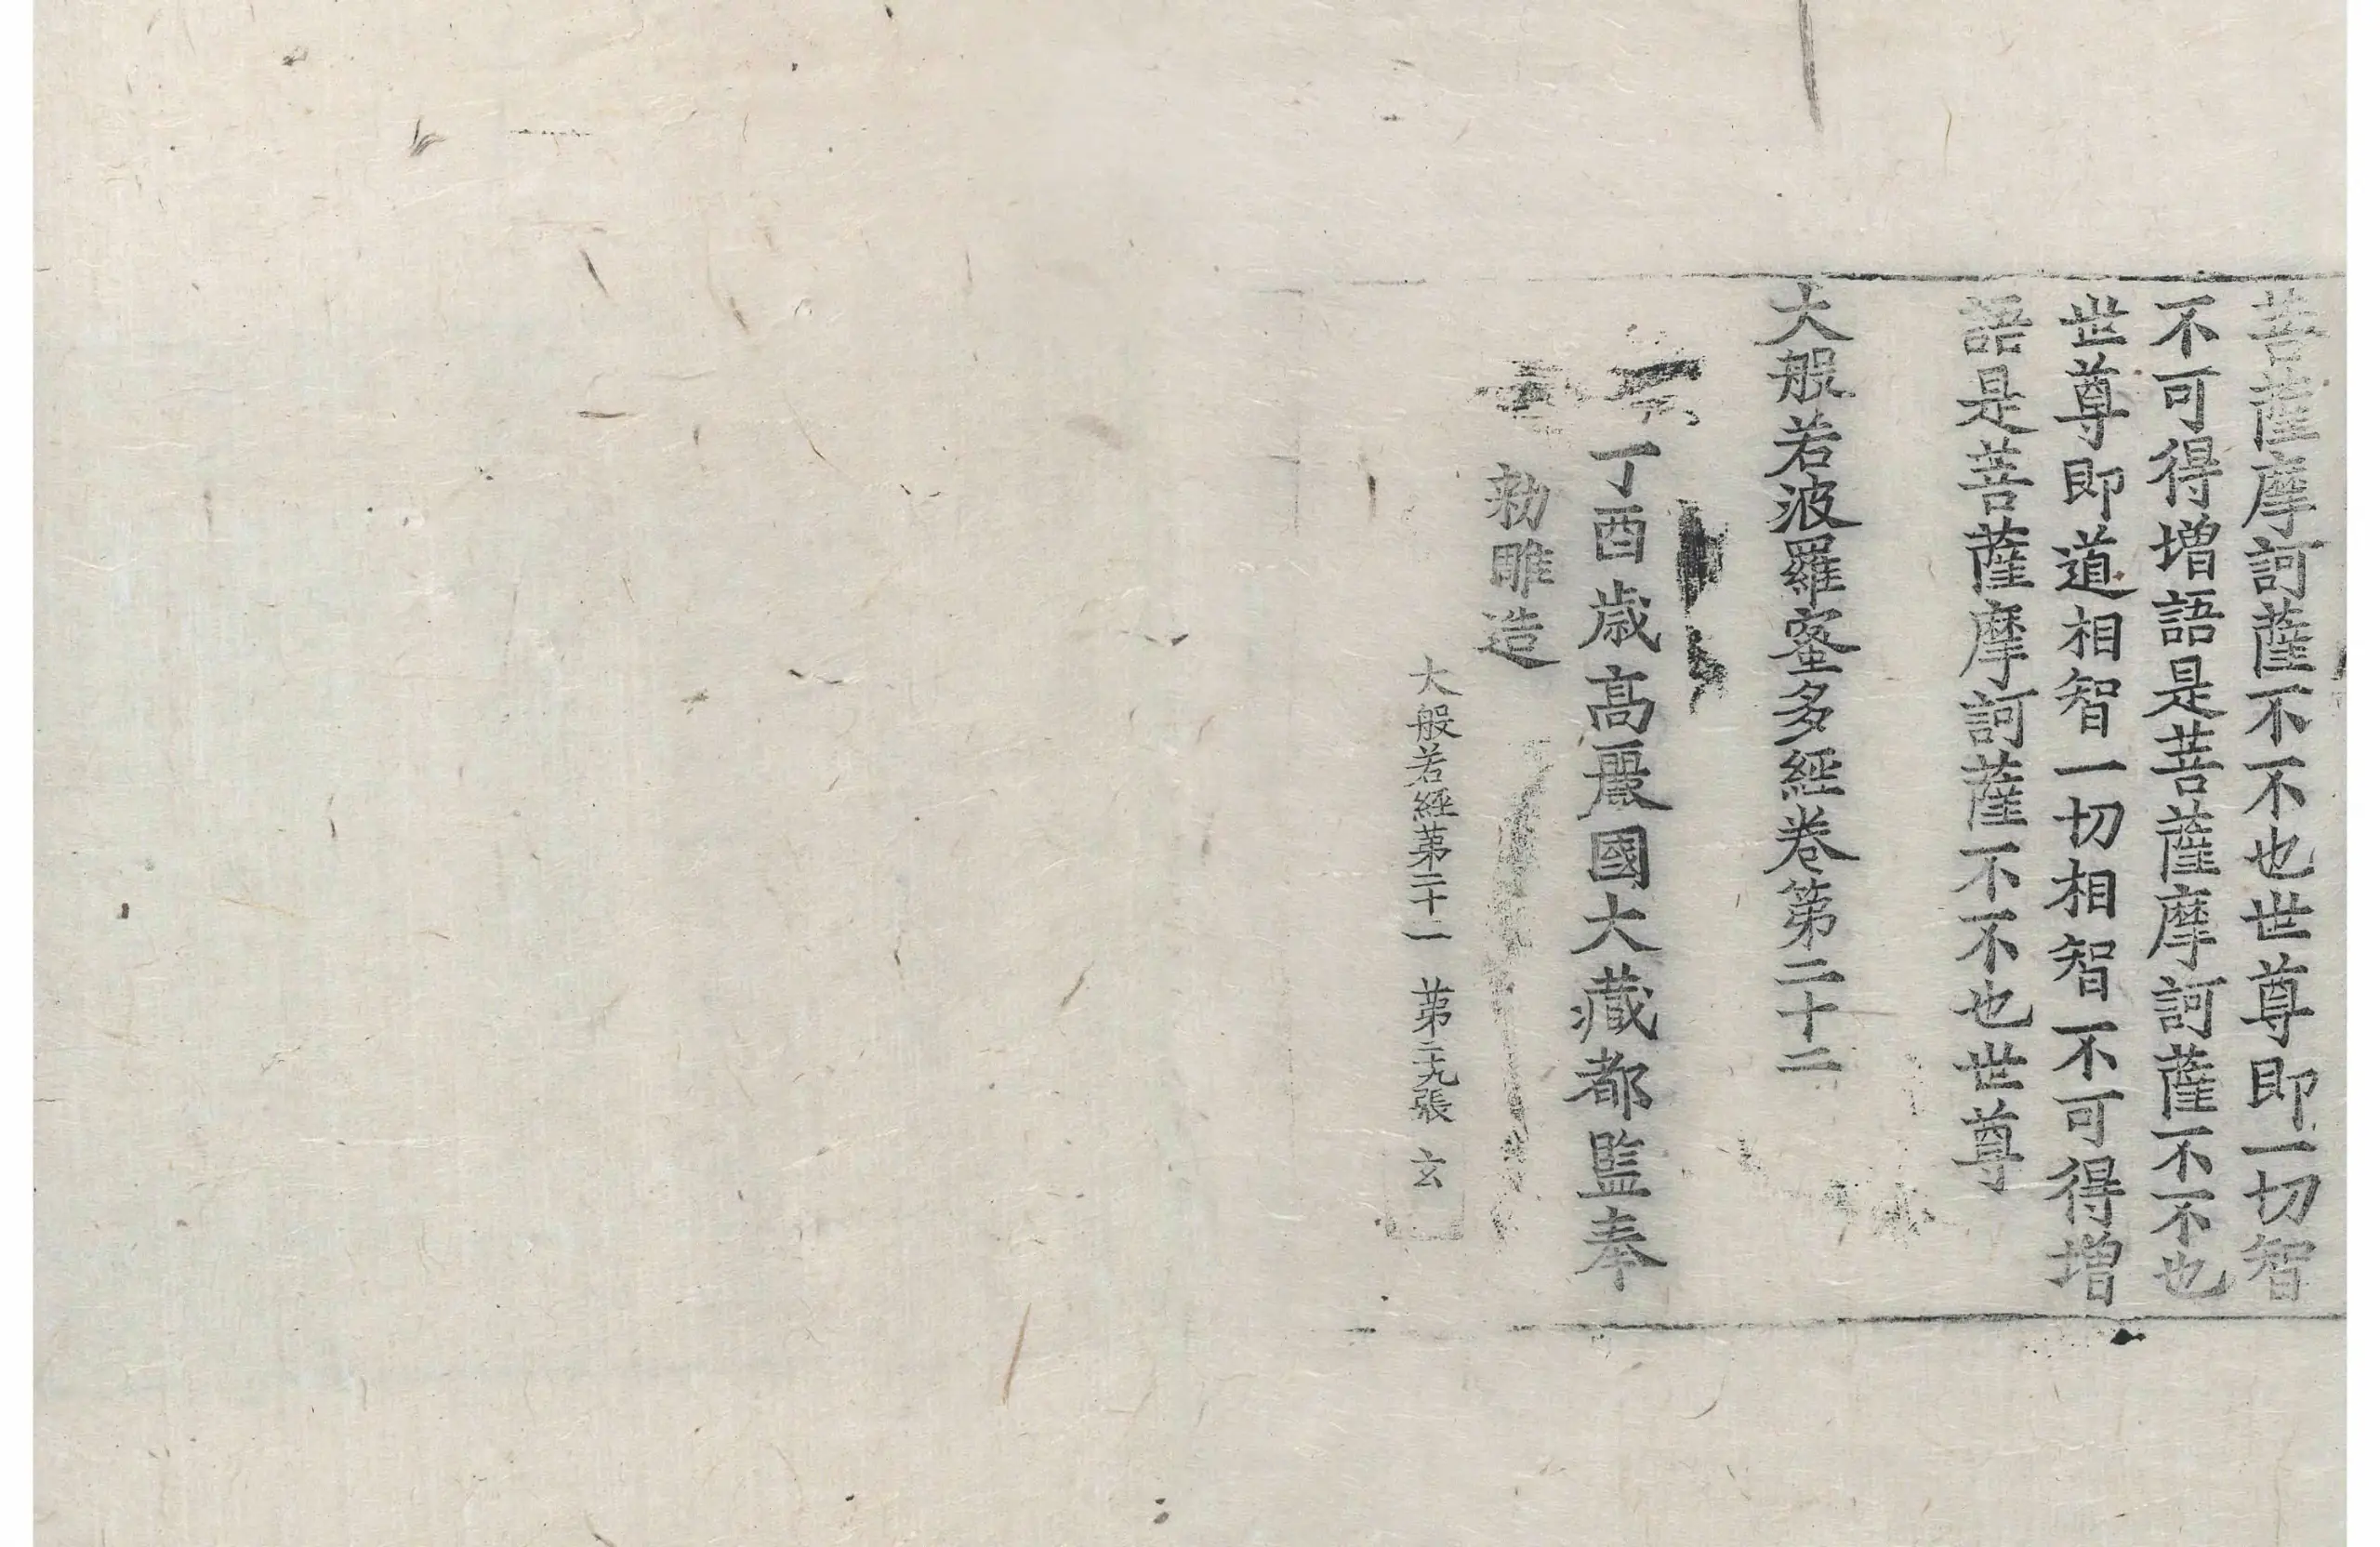 菩薩摩訶薩不不也世尊即一切智
不可得增語是菩薩摩訶薩不不也
世尊即道相智一切相智不可得增
語是菩薩摩訶薩不不也世尊
大般若波羅蜜多經卷第二十二
丁酉歲高麗國大藏都監奉
勅雕造
大般若經苐二十一 苐二十九張 玄